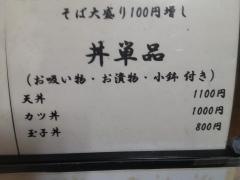 そば大盛り100円増し
丼単品
(お吸い物・お漬物・小鉢 付き)
天丼 1100円
カツ丼 1000円
玉子丼 800円